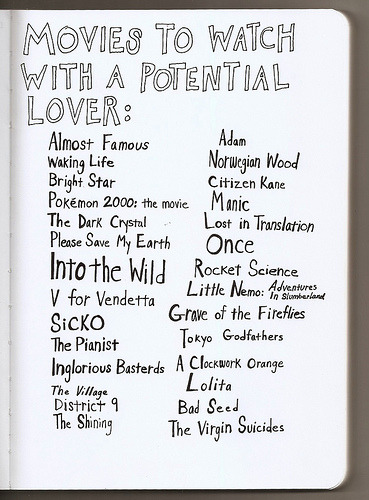 MOVIES TO WATCH
WITH A POTENTIAL
LOVER:
Almost Famous
Waking Life
Bright Star
Pokémon 2000: the movie
The Dark Crystal
Please Save My Earth
Into the Wild
V for Vendetta
SiCKO
The Pianist
Inglorious Basterds
The Village
District 9
The Shining
Adam
Norwegian Wood
Citizen Kane
Manic
Lost in Translation
Once
Rocket Science
Little Nemo: Adventures
In Slumberland
Grave of the Fireflies
Tokyo Godfathers
A Clockwork Orange
Lolita
Bad Seed
The Virgin Suicides